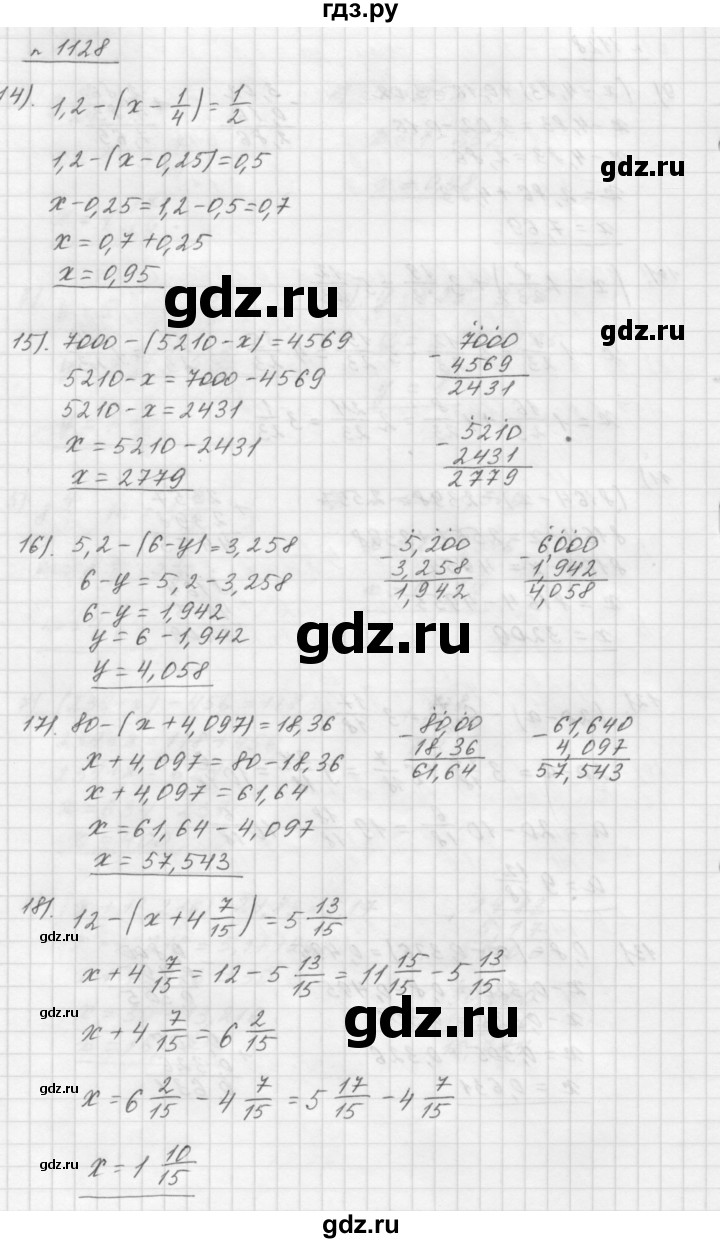 гдз.ру
n 1128
14). 1,2-(x-1/4)=1/2
1,2-(x-0,25)=0,5
gdz.ru
x-0,25=1,2-0,5=0,7
x=0,7+0,25
x=0,95
gdz.ru
gdz.ru
15). 7000-(5210-x)=4569
5210-x=7000-4569
5210-x=2431
x=5210-2431
x=2779
- 7000
4569
2431
- 5210
2431
2779
16). 5,2-(6-y)=3,258
6-y=5,2-3,258
6-y=1,942
y=6-1,942
y=4,058
- 5,200
3,258
1,942
- 6000
1,942
4,058
gdz.ru
17). 80-(x+4,097)=18,36
x+4,097=80-18,36
x+4,097=61,64
x=61,64-4,097
x=57,543
- 80,00
18,36
61,64
- 61,640
4,097
57,543
18). 12-(x+4 7/15)=5 13/15
gdz.ru
x+4 7/15=12-5 13/15=11 15/15-5 13/15
gdz.ru
x+4 7/15=6 2/15
gdz.ru
gdz.ru
x=6 2/15-4 7/15=5 17/15-4 7/15
gdz.ru
x=1 10/15
gdz.ru